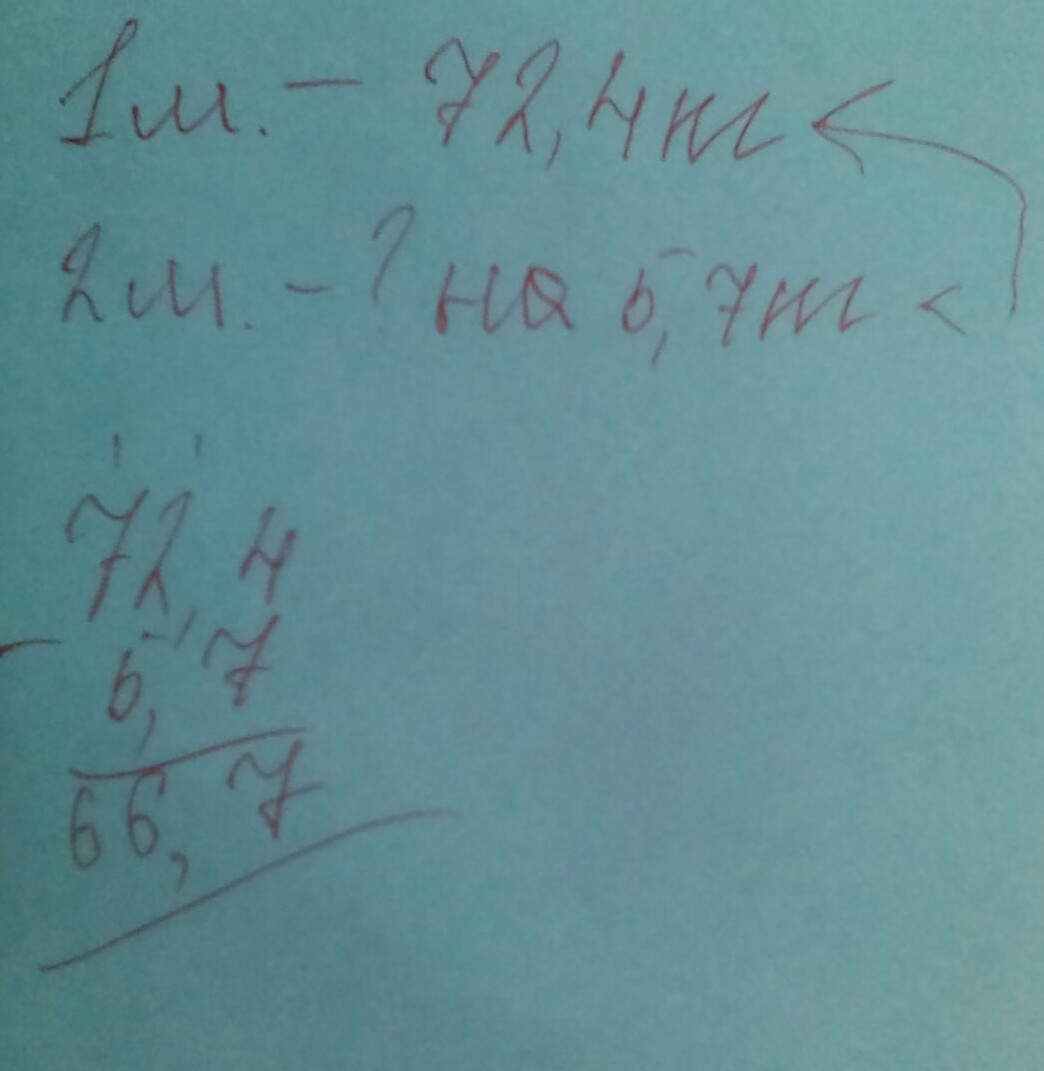 1м. – 72,4кг
2м. – ? на 5,7кг <
72,4
–
5,7
66,7